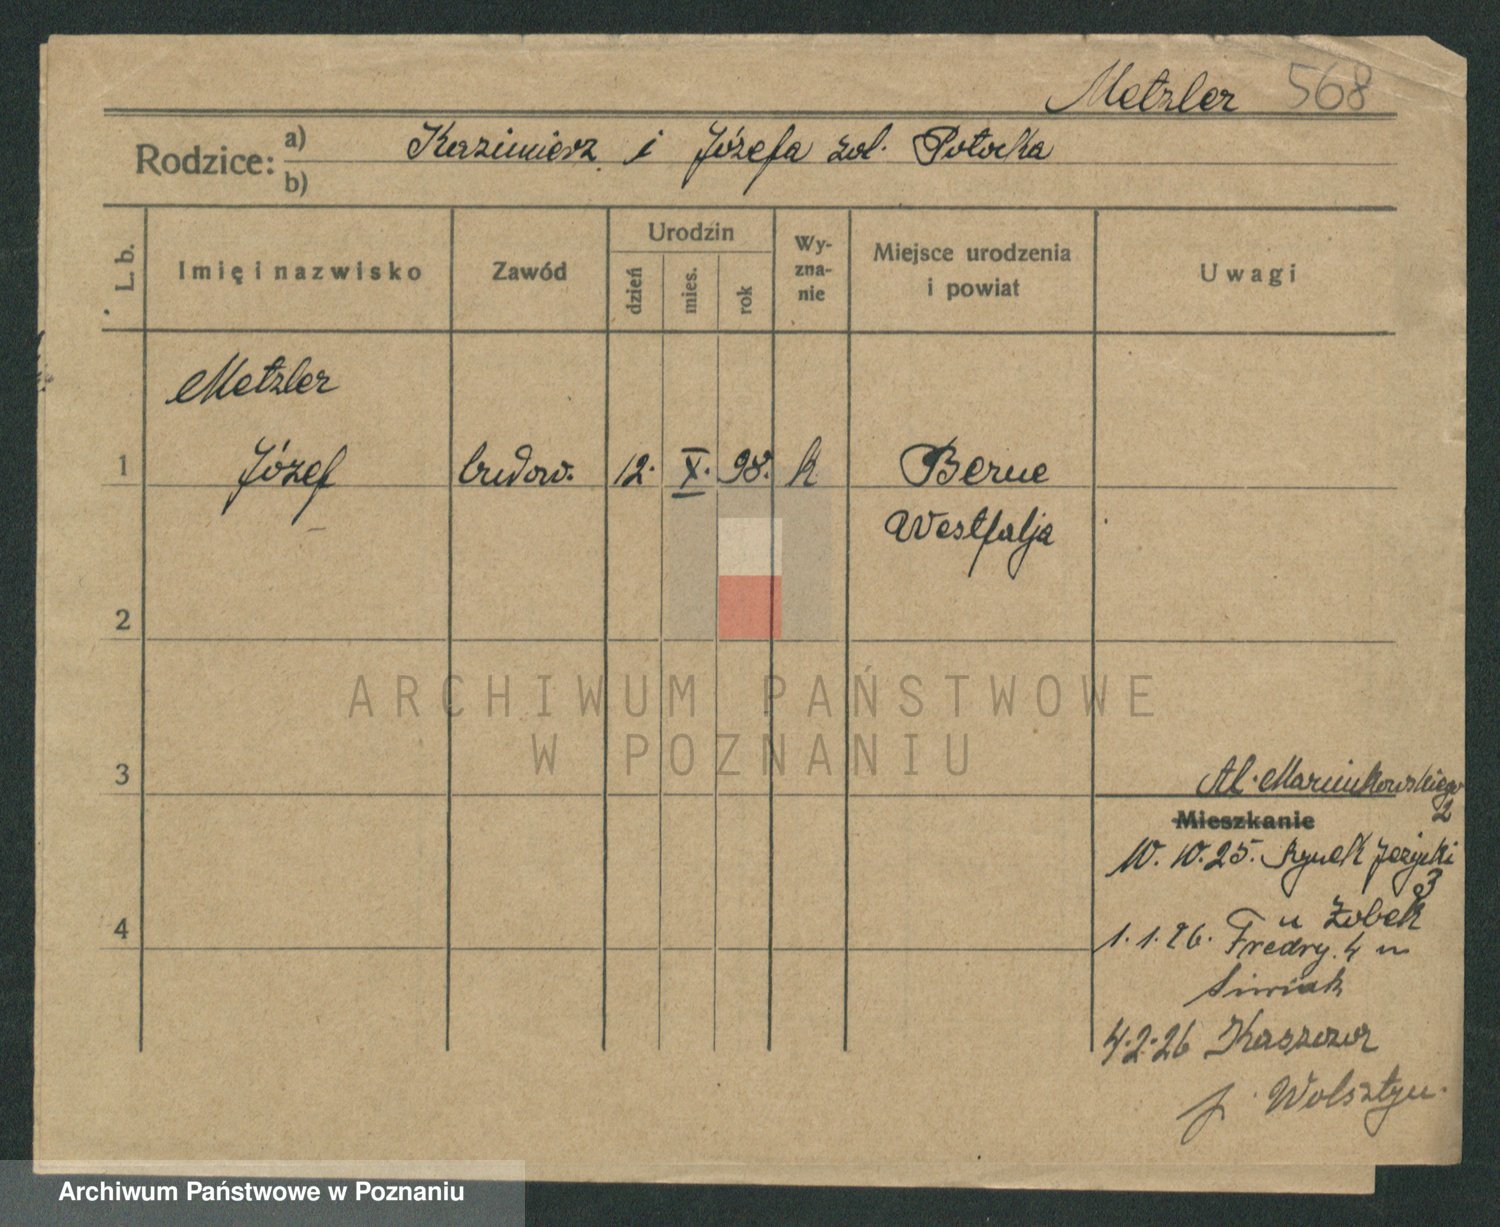 Metzler 568
Rodzice: a) Kazimierz i Józefa zol. Potocka
b)
L. b.
Imię i nazwisko
Zawód
Urodzin
dzień
mies.
rok
Wy-
zna-
nie
Miejsce urodzenia
i powiat
Uwagi
Metzler
1 Józef budow. 12. X. 98. k Berne
Westfalja
2
ARCHIWUM PAŃSTWOWE
W POZNANIU
3
Al. Marcinkowskiego
2
Mieszkanie
10. 10. 25. Rynek Jeżycki
3
u Żobek
4
1. 1. 26. Fredry. 4 u
Siwiak
4.2.26 Kaszczor
p. Wolsztyn.
Archiwum Państwowe w Poznaniu